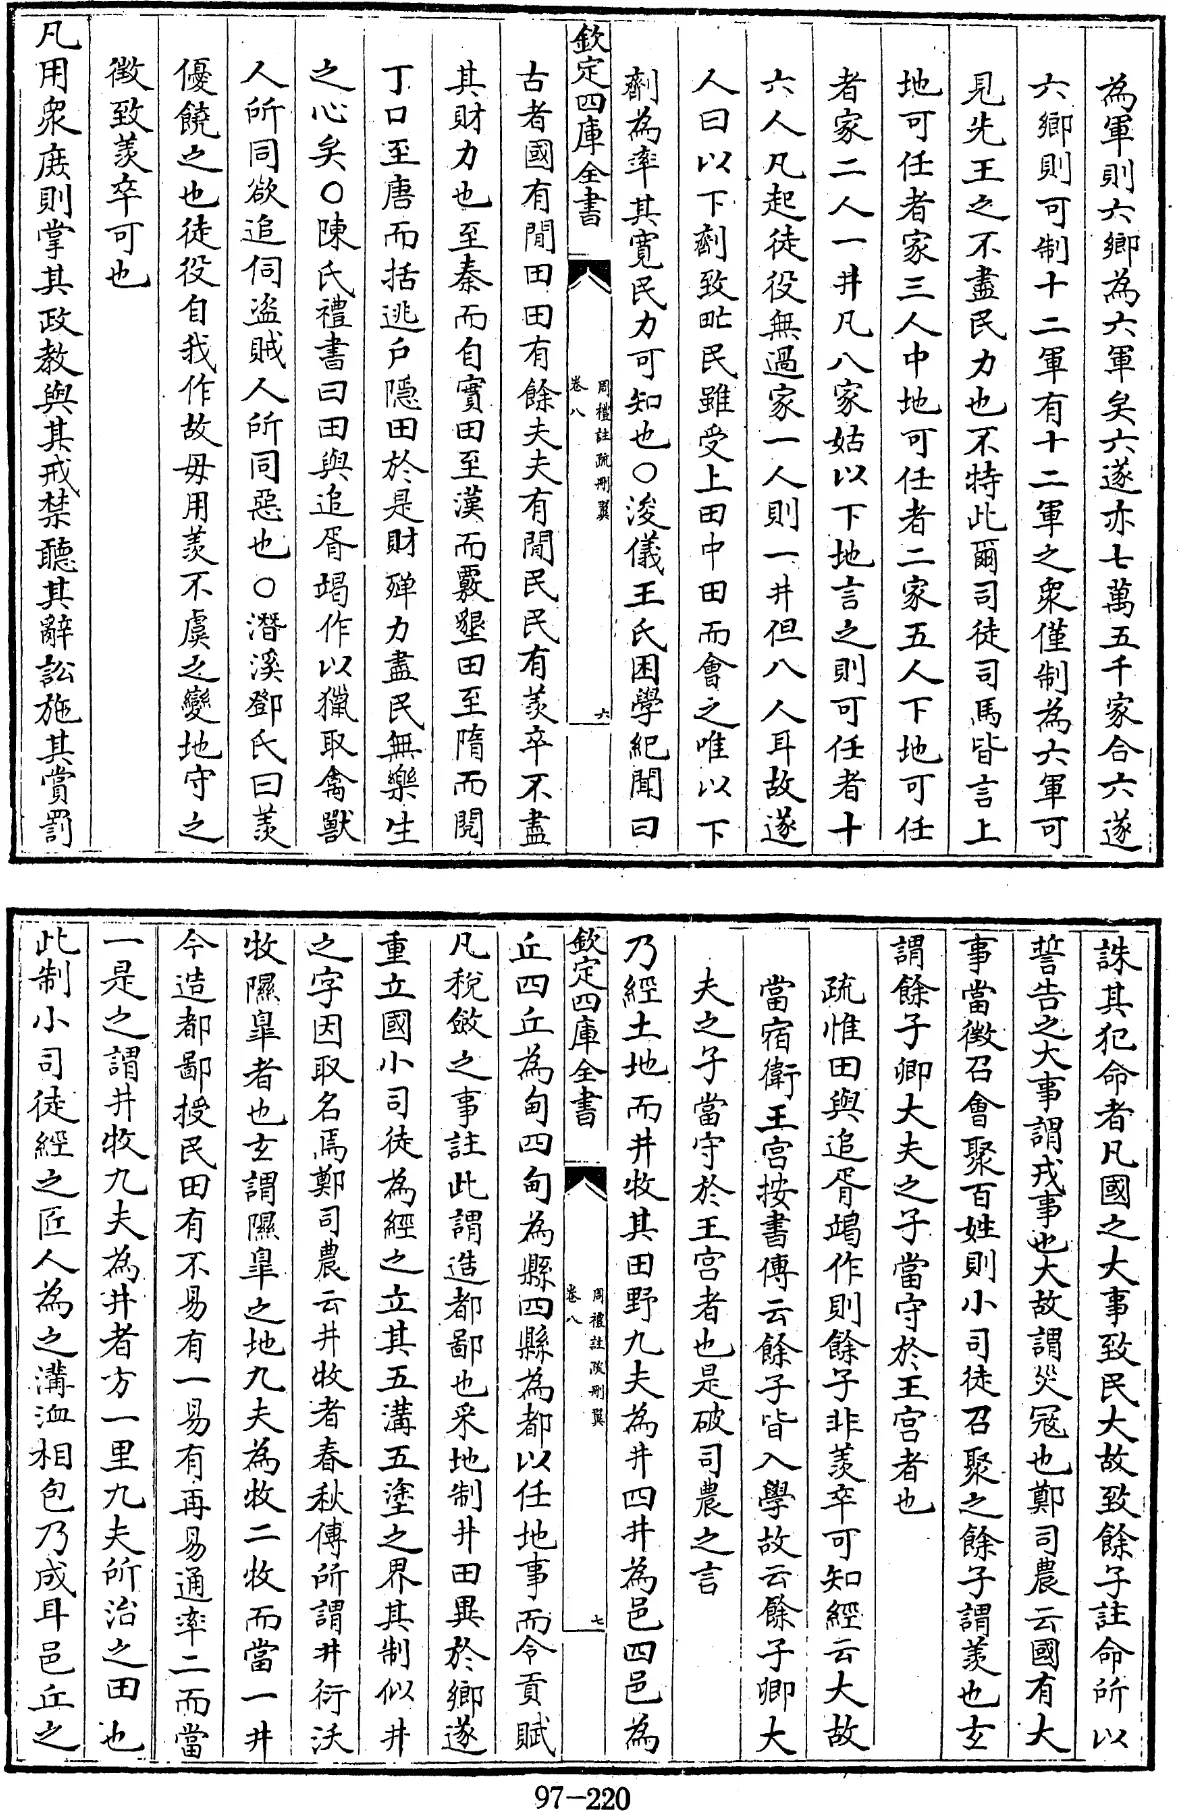 為軍則六鄉為六軍矣六遂亦七萬五千家合六遂
六鄉則可制十二軍有十二軍之衆僅制為六軍可
見先王之不盡民力也不特此爾司徒司馬皆言上
地可任者家三人中地可任者二家五人下地可任
者家二人一井凡八家姑以下地言之則可任者十
六人凡起徒役無過家一人則一井但八人耳故遂
人曰以下劑致甿民雖受上田中田而會之唯以下
劑為率其寬民力可知也○浚儀王氏困學紀聞曰
欽定四庫全書
周禮註疏刪翼
卷八
六
古者國有閒田田有餘夫夫有閒民民有羨卒不盡
其財力也至秦而自實田至漢而覈墾田至隋而閱
丁口至唐而括逃戶隱田於是財殫力盡民無樂生
之心矣○陳氏禮書曰田與追胥竭作以獵取禽獸
人所同欲追伺盗賊人所同惡也○潛溪鄧氏曰羨
優饒之也徒役自我作故毋用羨不虞之變地守之
徵致羨卒可也
凡用衆庶則掌其政教與其戒禁聽其辭訟施其賞罰
誅其犯命者凡國之大事致民大故致餘子註命所以
誓告之大事謂戎事也大故謂災冦也鄭司農云國有大
事當徵召會聚百姓則小司徒召聚之餘子謂羨也玄
謂餘子卿大夫之子當守於王宮者也
疏惟田與追胥竭作則餘子非羨卒可知經云大故
當宿衛王宮按書傳云餘子皆入學故云餘子卿大
夫之子當守於王宮者也是破司農之言
乃經土地而井牧其田野九夫為井四井為邑四邑為
欽定四庫全書
周禮註疏刪翼
卷八
七
丘四丘為甸四甸為縣四縣為都以任地事而令貢賦
凡稅斂之事註此謂造都鄙也采地制井田異於鄉遂
重立國小司徒為經之立其五溝五塗之界其制似井
之字因取名焉鄭司農云井牧者春秋傳所謂井衍沃
牧隰臯者也玄謂隰臯之地九夫為牧二牧而當一井
今造都鄙授民田有不易有一易有再易通率二而當
一是之謂井牧九夫為井者方一里九夫所治之田也
此制小司徒經之匠人為之溝洫相包乃成耳邑丘之
97-220